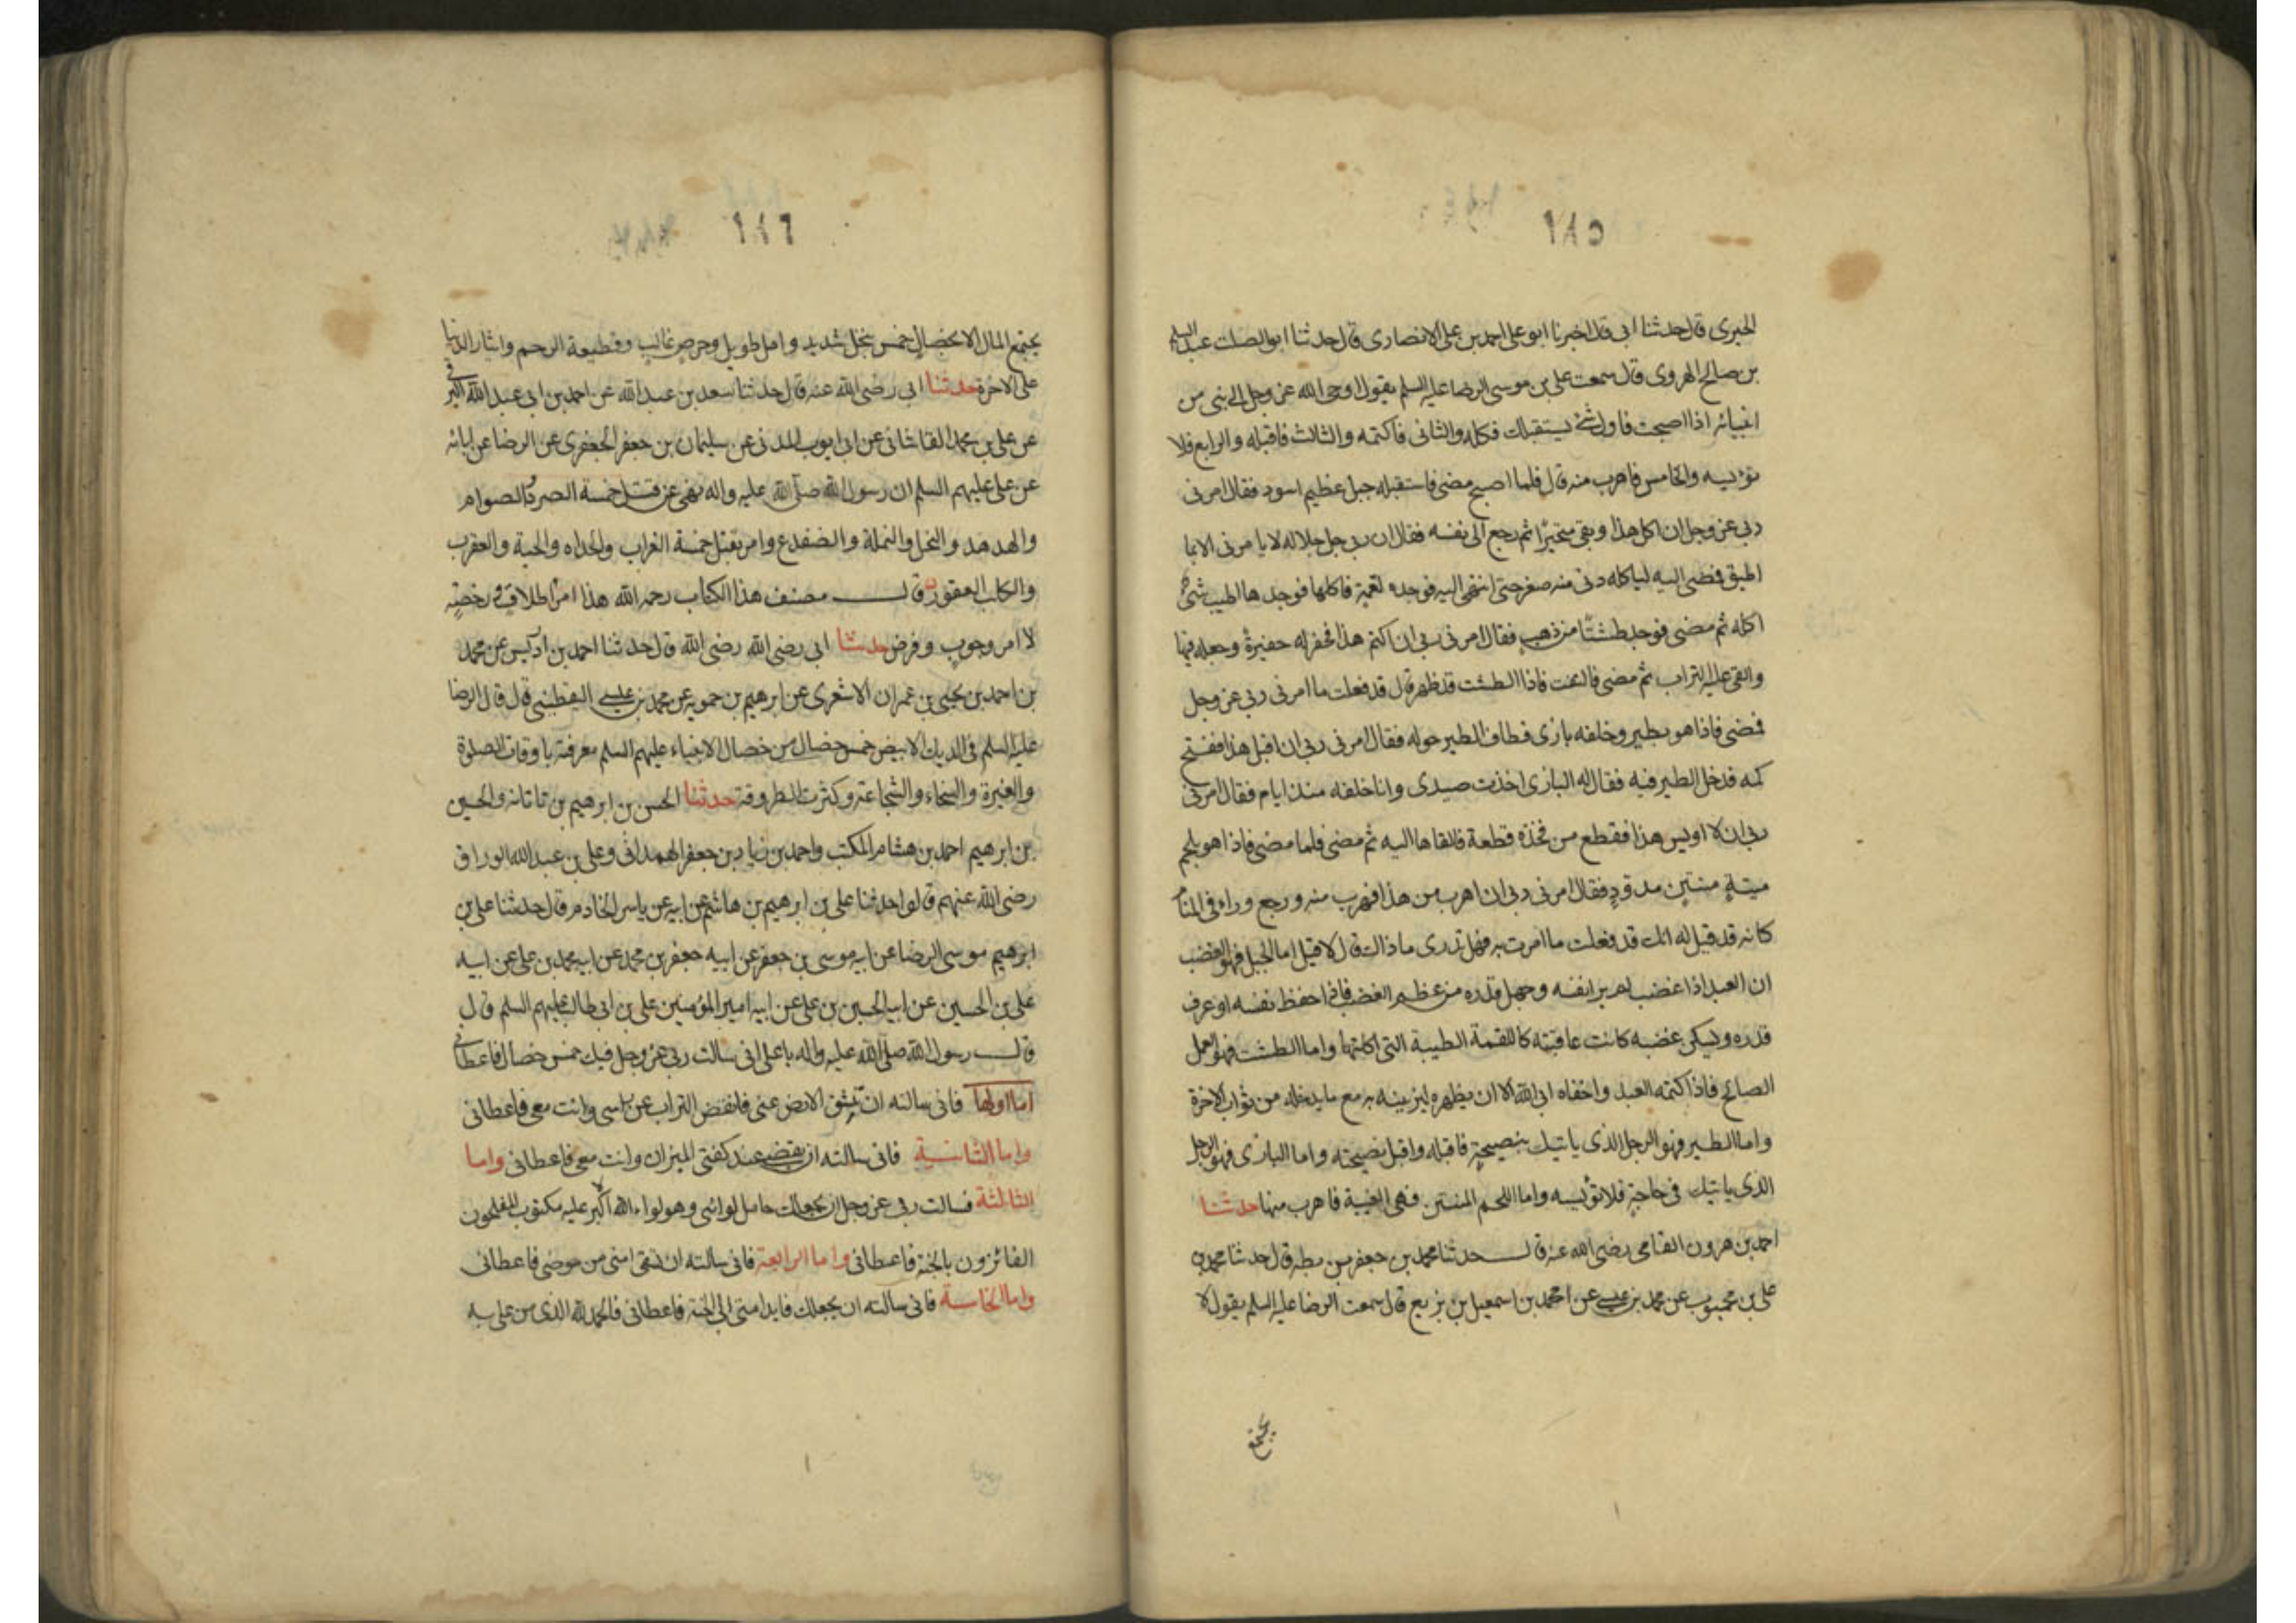 ١٨٥
الحيرى قال حدثنا ابى قال اخبرنا ابو على احمد بن على الانصارى قال حدثنا ابو الصلت عبد السلم
بن صالح الهروى قال سمعت على بن موسى الرضا عليه السلم يقول اوحى الله عز وجل الى نبى من
انبيائه اذا اصبحت فاول شئ يستقبلك فكله والثانى فاكتمه والثالث فاقبله والرابع فلا
تؤيسه والخامس فاهرب منه قال فلما اصبح مضى فاستقبله جبل عظيم اسود فقال امرنى
ربى عز وجل ان اكل هذا وبقى متحيرا ثم رجع الى نفسه فقال ان ربى جل جلاله لا يامرنى الا بما
اطيق فمضى اليه لياكله دنى منه صغر حتى انتهى اليه فوجده لقمة فاكلها فوجدها اطيب شئ
اكله ثم مضى فوجد طشتا من ذهب فقال امرنى ربى ان اكتم هذا فحفر له حفيرة وجعله فيها
والقى عليه التراب ثم مضى فالتفت فاذا الطشت قد ظهر قال قد فعلت ما امرنى ربى عز وجل
فمضى فاذا هو بطير وخلفه بازى فطاف الطير حوله فقال امرنى ربى ان اقبل هذا ففتح
كمه فدخل الطير فيه فقال له البازى اخذت صيدى وانا خلفه منذ ايام فقال امرنى
ربى ان لا اويس هذا فقطع من فخذه قطعة فالقاها اليه ثم مضى فلما مضى فاذا هو بلحم
ميتة منتن مدود فقال امرنى ربى ان اهرب من هذا فهرب منه ورجع وراى فى المنام
كانه قد قيل له انك قد فعلت ما امرت به فهل تدرى ماذاك قال لا قيل اما الجبل فهو الغضب
ان العبد اذا غضب لم ير نفسه وجهل قدره من عظم الغضب فاذا حفظ نفسه او عرف
قدره وليسكن غضبه كانت عاقبته كاللقمة الطيبة التى اكلتها واما الطشت فهو العمل
الصالح فاذا كتمه العبد واخفاه ابى الله الا ان يظهره ليزينه به مع ما يدخله من ثواب الاخرة
واما الطير فهو الرجل الذى ياتيك بنصيحة فاقبله واقبل نصيحته واما البازى فهو الرجل
الذى ياتيك فى حاجة فلا تؤيسه واما اللحم المنتن فهى الغيبة فاهرب منها حدثنا
احمد بن هرون القامى رضى الله عنه قال حدثنا محمد بن جعفر بن بطه قال حدثنا محمد بن
على بن محبوب عن محمد بن عيسى عن احمد بن اسمعيل بن بزيع قال سمعت الرضا عليه السلم يقول لا
يجتمع
١٨٦
يجتمع المال الا بخصال خمس بخل شديد وامل طويل وحرص غالب وقطيعة الرحم وايثار الدنيا
على الاخرة حدثنا ابى رضى الله عنه قال حدثنا سعد بن عبد الله عن احمد بن ابى عبد الله البرقى
عن على بن محمد القاشانى عن ابى ايوب المدنى عن سليمان بن جعفر الجعفرى عن الرضا عن ابائه
عن على عليهم السلم ان رسول الله صلى الله عليه واله نهى عن قتل خمسة الصرد الصوام
والهدهد والنحل والنملة والضفدع وامر بقتل خمسة الغراب والحداه والحية والعقرب
والكلب العقور قال مصنف هذا الكتاب رحمه الله هذا امر اطلاق ورخصة
لا امر وجوب وفرض حدثنا ابى رضى الله رضى الله قال حدثنا احمد بن ادريس عن محمد
بن احمد بن يحيى بن عمران الاشعرى عن ابرهيم بن حمويه عن محمد بن عيسى اليقطينى قال قال الرضا
عليه السلم فى الديك الابيض خمس خصال من خصال الانبياء عليهم السلم معرفته باوقات الصلوة
والغيرة والسخاء والشجاعة وكثرت الطروقة حدثنا الحسن بن ابرهيم بن تاتانه والحسين
بن ابرهيم احمد بن هشام المكتب واحمد بن زياد بن جعفر الهمدانى وعلى بن عبد الله الوراق
رضى الله عنهم قالوا حدثنا على بن ابرهيم بن هاشم عن ابيه عن ياسر الخادم قال حدثنا على بن
ابرهيم موسى الرضا عن ابيه موسى بن جعفر عن ابيه جعفر بن محمد عن ابيه محمد بن على عن ابيه
على بن الحسين عن ابيه الحسين بن على عن ابيه امير المؤمنين على بن ابى طالب عليهم السلم قال
قال رسول الله صلى الله عليه واله يا على انى سالت ربى عز وجل فيك خمس خصال فاعطانى
اما اولها فانى سالته ان تنشق الارض عنى فانفض التراب عن راسى وانت معى فاعطانى
واما الثانية فانى سالته ان يقفنى عند كفتى الميزان وانت معى فاعطانى واما
الثالثة فسالت ربى عز وجل ان يجعلك حامل لوائى وهو لواء الله اكبر عليه مكتوب المفلحون
الفائزون بالجنة فاعطانى واما الرابعة فانى سالته ان تسقى امتى من حوضى فاعطانى
واما الخامسة فانى سالته ان يجعلك قايد امتى الى الجنة فاعطانى فالحمد لله الذى من على به